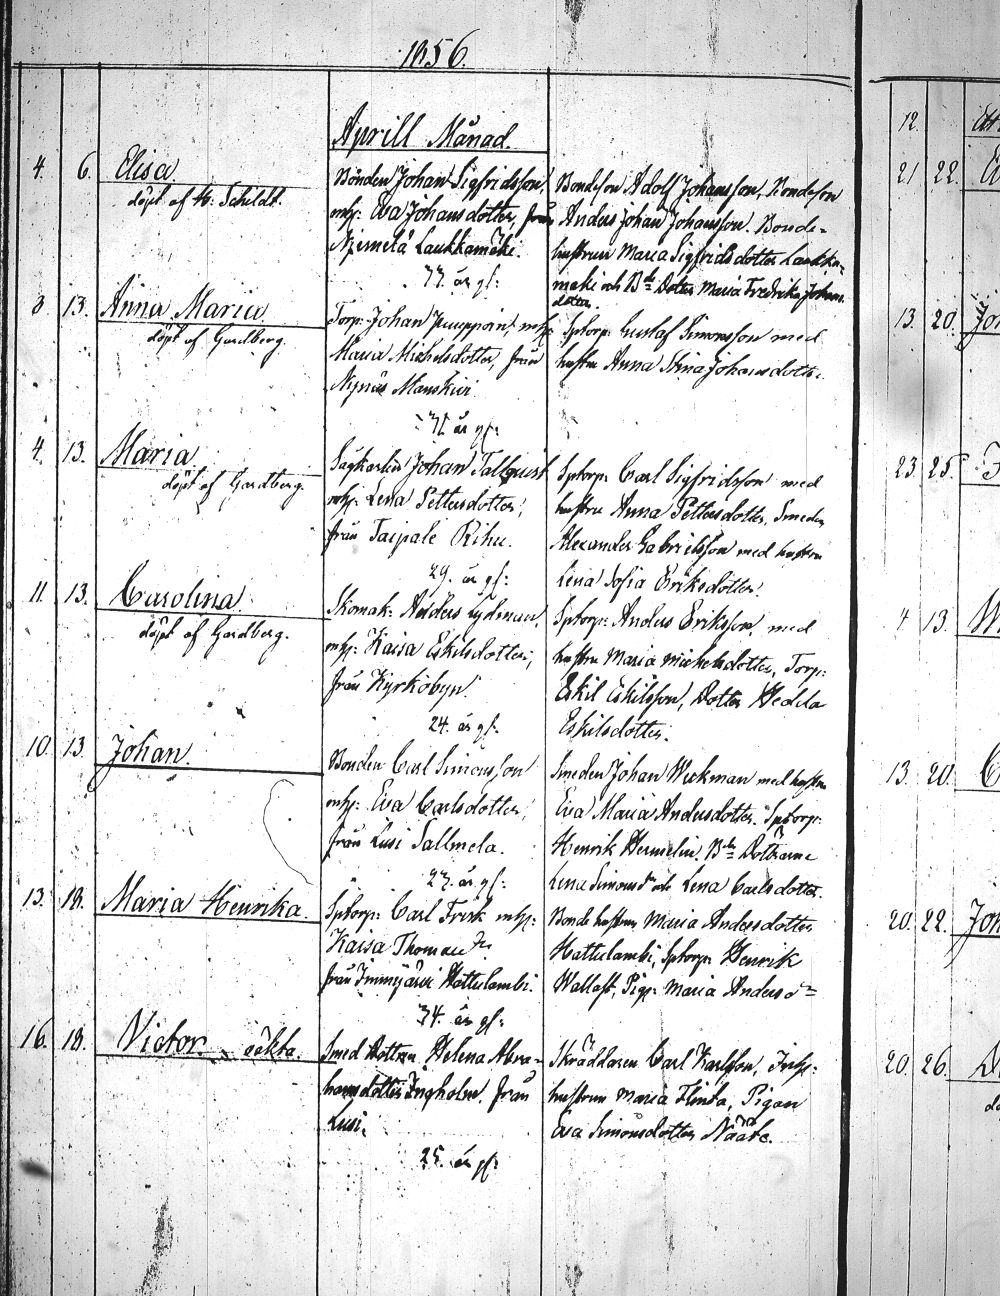 1856.
Aprill Månad.
4. 6. Elisa
döpt af H: Schildt.
Bonden Johan Sigfridsson,
mh: Eva Johansdotter, från
Njemelä Laukkamäki.
37. år gl:
Bondeson Adolf Johansson, Bondeson
Anders Johan Johansson. Bonde-
hustrun Maria Sigfridsdotter Laukka-
mäki och Bde Dotter Maria Fredrika Johans
dotter.
3 13. Anna Maria
döpt af Gardberg.
Torp: Johan Juuppoin, mh:
Maria Michelsdotter, från
Nynäs Manskivi
31. år gl:
Sptorp: Gustaf Simonsson med
hustru Anna Stina Johansdotter.
4. 13. Maria
döpt af Gardberg.
Sågkarlen Johan Tallquist
mh: Lena Pettersdotter,
från Taipale Rihu.
29. år gl:
Sptorp: Carl Sigfridsson med
hustru Anna Pettersdotter, Smeden
Alexander Gabrielsson med hustru
Lena Sofia Eriksdotter.
11. 13. Carolina
döpt af Gardberg.
Skomak: Anders Lydman,
mh: Kaisa Eskilsdotter,
från Kyrkobyn.
24. år gl.
Sptorp: Anders Eriksson, med
hustru Maria Michelsdotter, Torp:
Eskil Eskilsson, Dotter Hedda
Eskilsdotter.
10. 13 Johan.
Bonden Carl Simonsson
mh: Eva Carlsdotter,
från Lusi Sallmela.
27. år gl:
Smeden Johan Wekman med hustru
Eva Maria Andersdotter. Sptorp:
Henrik Hermelin. Bde Döttrarne
Lena Simonsdr och Lena Carlsdotter.
13. 18. Maria Henrika.
Sptorp: Carl Frisk mh:
Kaisa Thomasdr
från Imnijärvi Hattulambi.
34. år gl:
Bonde hustrun Maria Andersdotter
Hattulambi, Sptorp: Henrik
Wallast, Pig: Maria Andersdr
16. 18. Victor. oäkta.
Smed Dottren Helena Abra-
hamsdotter Ingholm, från
Lusi.
25. år gl:
Skräddaren Carl Karlsson, Inh:
hustrun Maria Flinta, Pigan
Eva Simonsdotter Nääte.
12.
21 22.
13. 20.
23 25
4 13.
13. 20.
20. 22. Joh
20. 26.